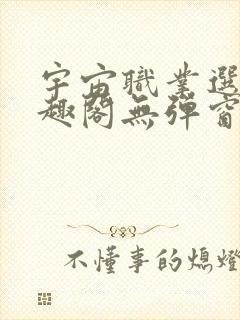 宇宙職業選
趣閣無彈窗
不懂事的熄燈